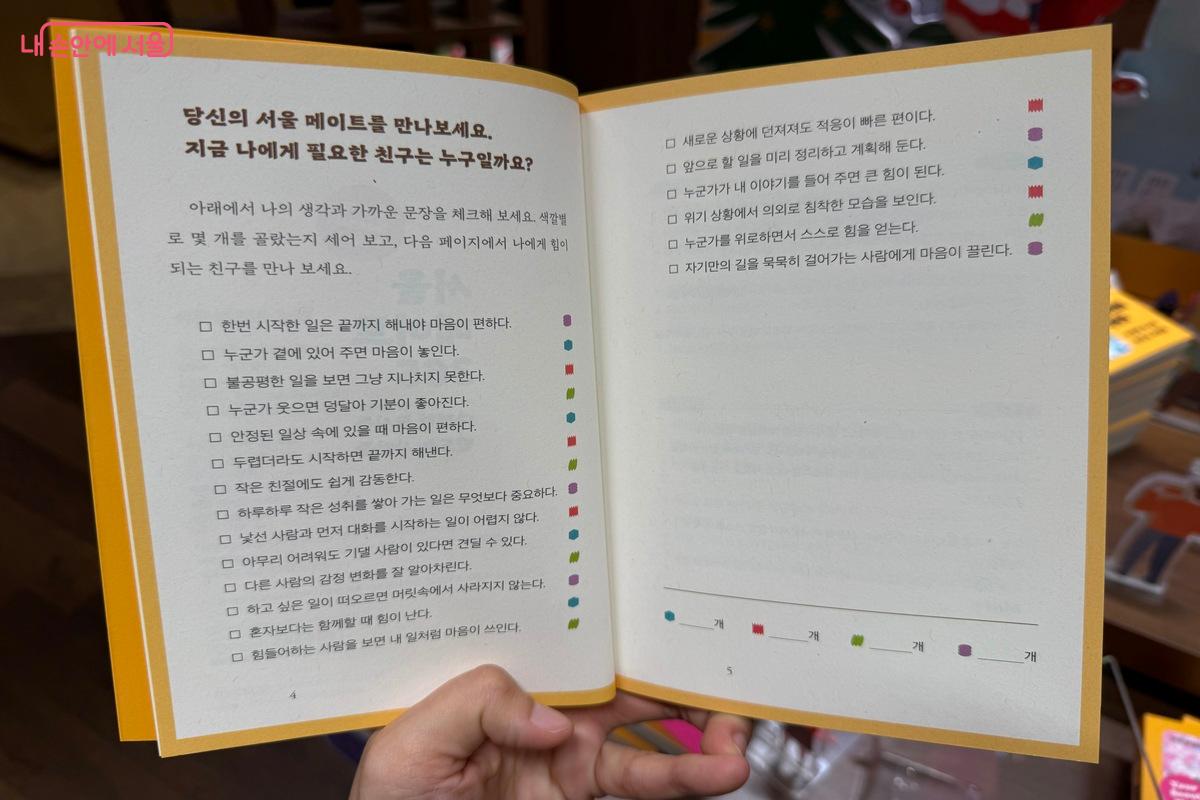 내 손안에 서울
당신의 서울 메이트를 만나보세요.
지금 나에게 필요한 친구는 누구일까요?
아래에서 나의 생각과 가까운 문장을 체크해 보세요. 색깔별
로 몇 개를 골랐는지 세어 보고, 다음 페이지에서 나에게 힘이
되는 친구를 만나 보세요.
□ 한번 시작한 일은 끝까지 해내야 마음이 편하다.
□ 누군가 곁에 있어 주면 마음이 놓인다.
□ 불공평한 일을 보면 그냥 지나치지 못한다.
□ 누군가 웃으면 덩달아 기분이 좋아진다.
□ 안정된 일상 속에 있을 때 마음이 편하다.
□ 두렵더라도 시작하면 끝까지 해낸다.
□ 작은 친절에도 쉽게 감동한다.
□ 하루하루 작은 성취를 쌓아 가는 일은 무엇보다 중요하다.
□ 낯선 사람과 먼저 대화를 시작하는 일이 어렵지 않다.
□ 아무리 어려워도 기댈 사람이 있다면 견딜 수 있다.
□ 다른 사람의 감정 변화를 잘 알아차린다.
□ 하고 싶은 일이 떠오르면 머릿속에서 사라지지 않는다.
□ 혼자보다는 함께할 때 힘이 난다.
□ 힘들어하는 사람을 보면 내 일처럼 마음이 쓰인다.
4
□ 새로운 상황에 던져져도 적응이 빠른 편이다.
□ 앞으로 할 일을 미리 정리하고 계획해 둔다.
□ 누군가가 내 이야기를 들어 주면 큰 힘이 된다.
□ 위기 상황에서 의외로 침착한 모습을 보인다.
□ 누군가를 위로하면서 스스로 힘을 얻는다.
□ 자기만의 길을 묵묵히 걸어가는 사람에게 마음이 끌린다.
____개 ____개 ____개 ____개
5